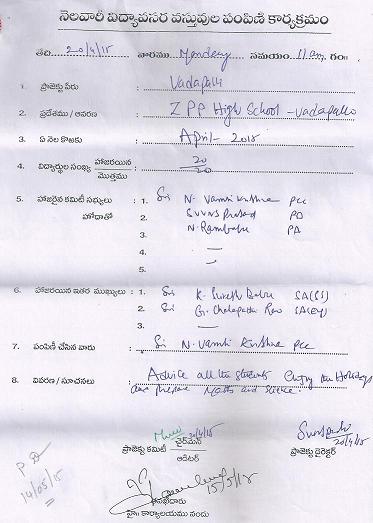 నెలవారీ విద్యావసర వస్తువుల పంపిణి కార్యక్రమం
తేది 20/4/15 వారము Monday సమయం 11 am గం॥
1. ప్రాజెక్టు పేరు : Vadapalli
2. ప్రదేశము / ఆవరణ : ZPP High School - Vadapalli
3. ఏ నెల కొఱకు : April - 2015
4. విద్యార్థుల సంఖ్య హాజరయిన / మొత్తము : 20/20
5. హాజరైన కమిటీ సభ్యులు : 1. Sri N. Vamsi Krishna PCC
హోదాతో 2. SVVNS Prasad PD
3. N. Rambabu PA
4. —
5. —
6. హాజరయిన ఇతర ముఖ్యులు : 1. Sri K. Suresh Babu SA(SS)
2. Sri G. Chalapathi Rao SA(Eng)
3. —
7. పంపిణీ చేసిన వారు : Sri N. Vamsi Krishna PCC
8. వివరణ / సూచనలు : Advice all the students Enjoy the Holidays
and prepare Maths and science.
20/4/15
20/4/15
ప్రాజెక్టు కమిటీ ఛైర్‌మేన్ / ఆడిటర్
ప్రాజెక్టు డైరెక్టర్
P D
14/05/15
15/5/15
కార్యాలయము నందు